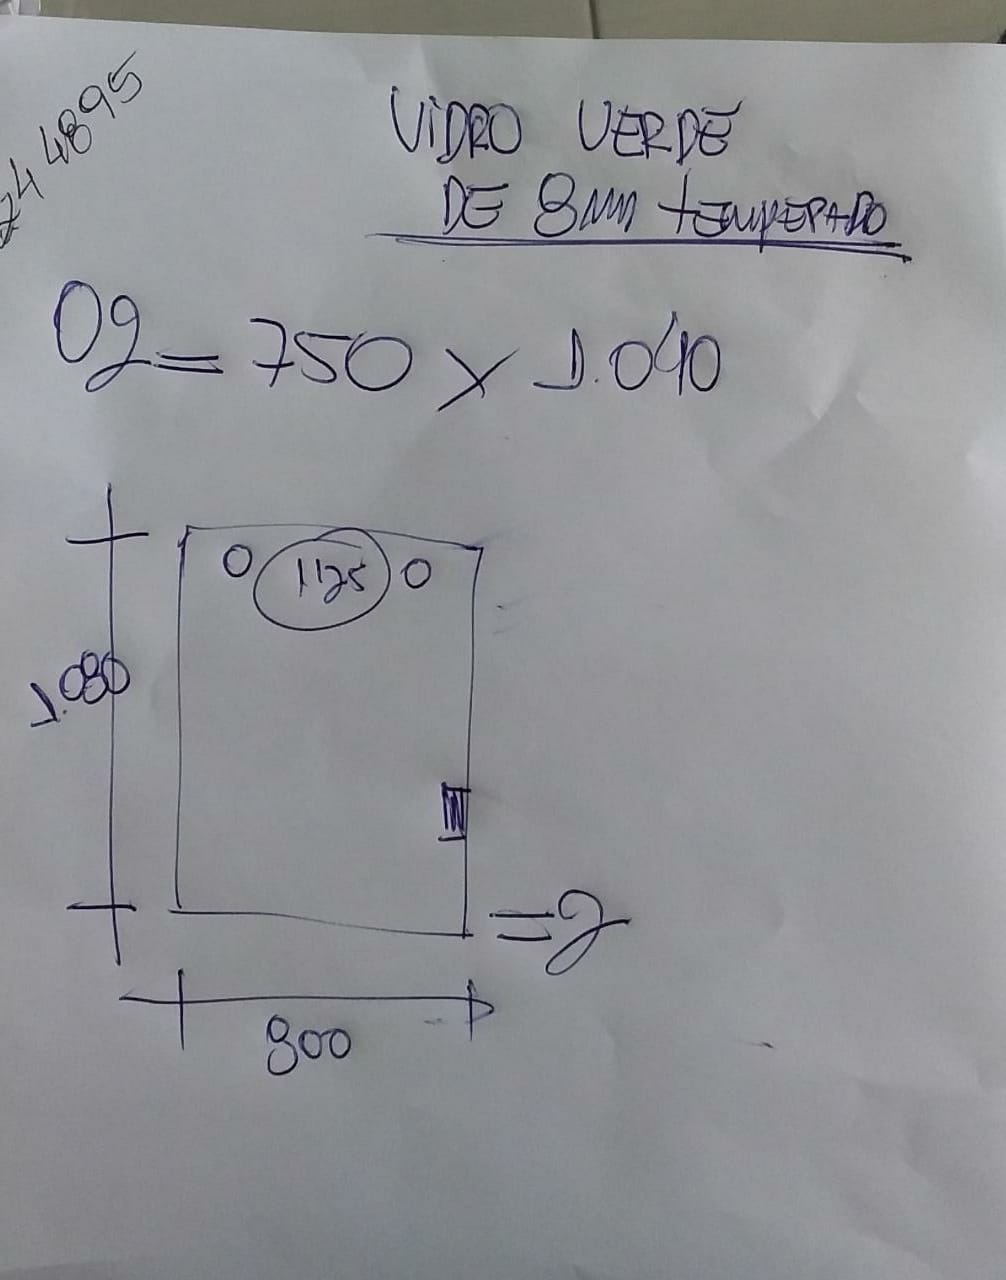 744895
VIDRO VERDE
DE 8mm TEMPERADO
02 = 750 x 1.040
1125
1.080
= 2
800